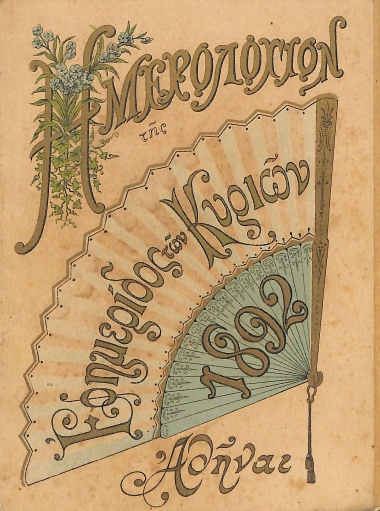 Ἡμερολόγιον
τῆς
Ἐφημερίδος τῶν Κυριῶν
1892
Ἀθῆναι